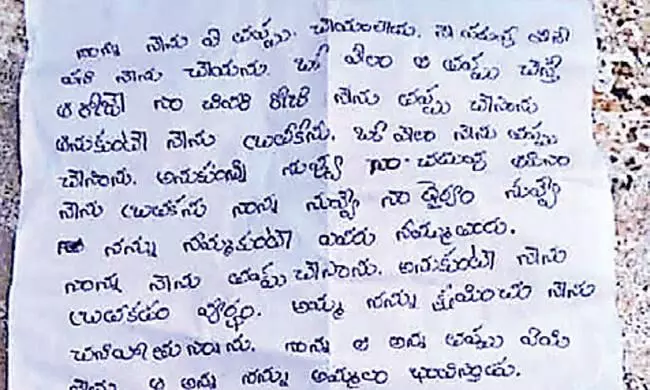 నాన్న నేను ఏ తప్పు. చేయలేదు. నీ
నేను చేయను. ఒక వేల ఆ తప్పు చేస్తే
ఆ రోజే నా చివరి రోజు నేను తప్పు చేసాను
అనుకుంటే నేను బ్రతకను. ఒక వేల నేను తప్పు
చేసాను. అనుకున్న నువ్వు నా
నేను బ్రతకను నాన్న నువ్వే నా ధైర్యం నువ్వే
నన్ను నమ్మకుంటే ఎవరు నమ్ముతరు.
నాన్న నేను తప్పు చేసాను. అనుకుంటే నేను
బ్రతకడం వ్యర్థం. అమ్మ నన్ను క్షమించు నేను
చనిపోతున్నాను. నాన్న ఆ అన్న తప్పు
నేను ఆ అన్న నన్ను